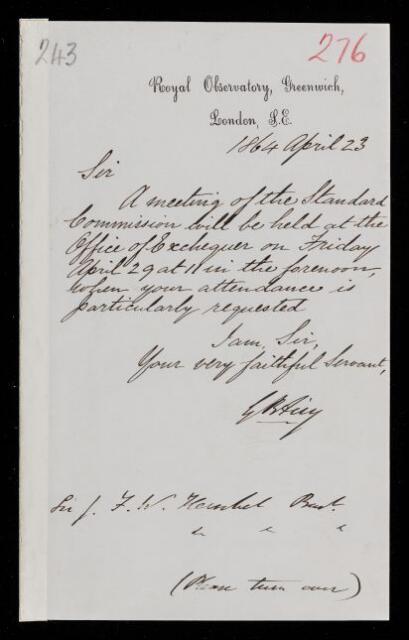 243
276
Royal Observatory, Greenwich,
London, S.E.
1864 April 23
Sir
A meeting of the Standard
Commission will be held at the
Office of Exchequer on Friday
April 29 at 11 in the forenoon,
when your attendance is
particularly requested
I am, Sir,
Your very faithful Servant,
G B Airy
Sir J. F. W. Herschel Bart.
(Please turn over)